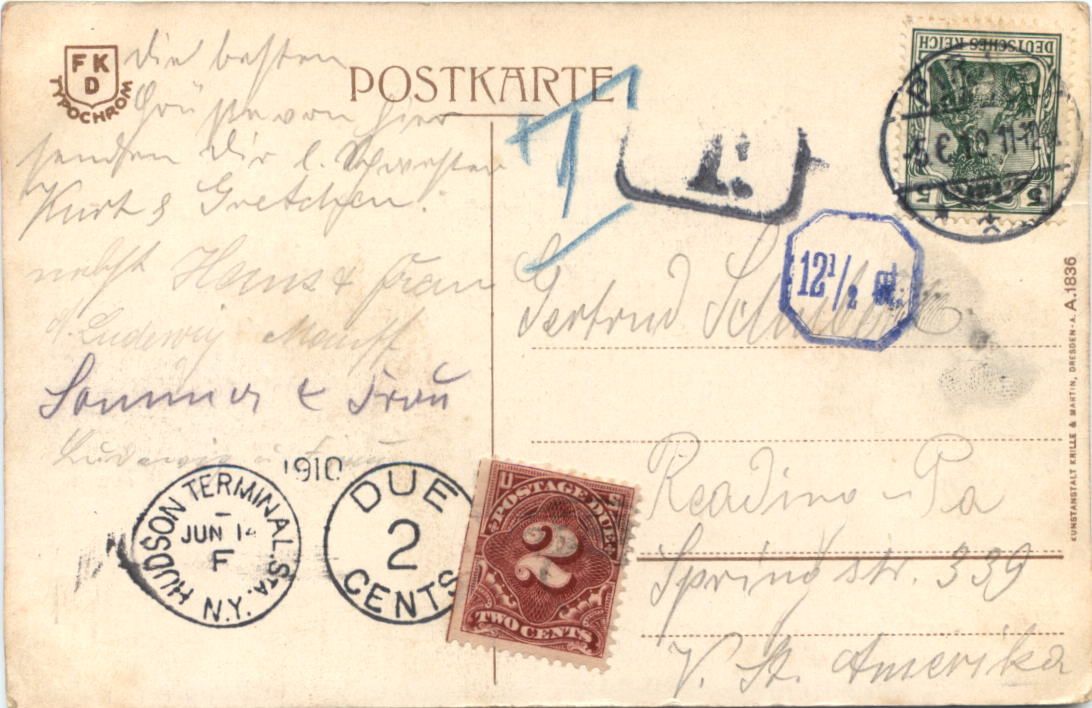 FKD
TYPOCHROM
POSTKARTE
die besten
Grüsse von hier
senden Dir l. Schwester
Kurt & Gretchen.
nebst Hans & Frau
Ludewig
Sommer & Frau
Ludewig u. Frau
DEUTSCHES REICH
5 5
11-12
T.
12 1/2 ct.
Gertrud
Reading – Pa
Spring str. 339
V. St. Amerika
1910
HUDSON TERMINAL STA.
JUN 14
F
N.Y.
DUE
2
CENTS
U S
POSTAGE DUE
2
TWO CENTS
A.1836
KUNSTANSTALT KRILLE & MARTIN, DRESDEN-A.